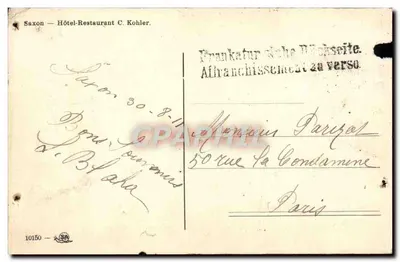 Saxon — Hôtel-Restaurant C. Kohler.
Frankatur siehe Rückseite.
Affranchissement au verso
Saxon 30-8-11
Bons Souvenirs
Monsieur Parizot
50 rue la Condamine
Paris
CPA
10150